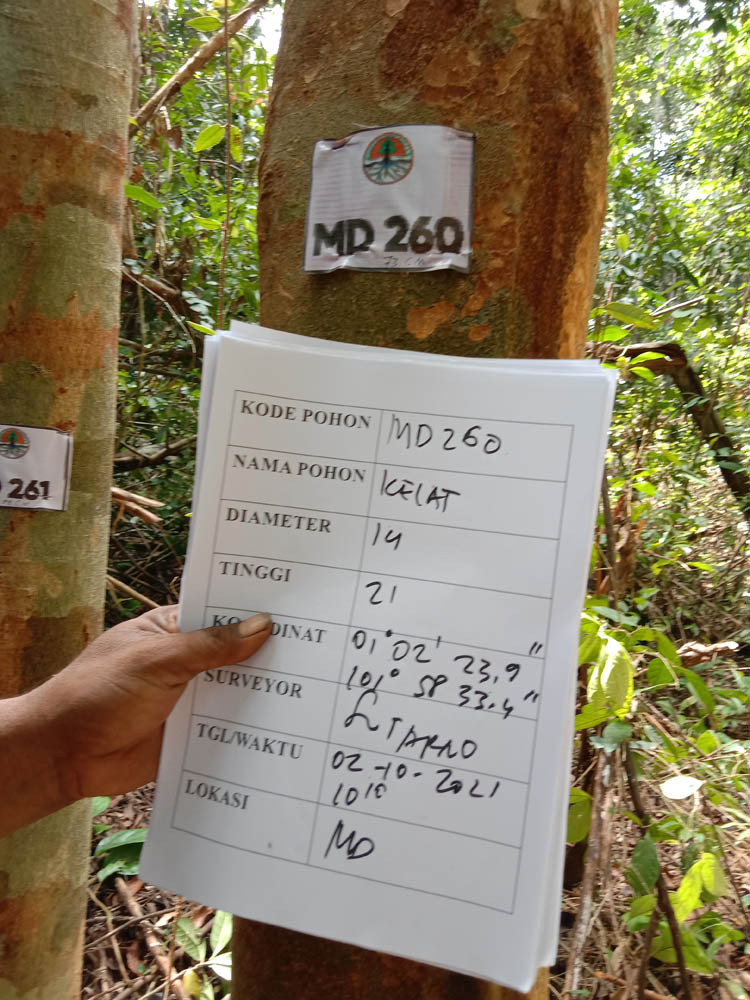 MD 260
261
KODE POHON MD 260
NAMA POHON KELAT
DIAMETER 14
TINGGI 21
01° 02' 23,9"
101° 58 33.4"
SURVEYOR
TGL/WAKTU 02-10-2021
LOKASI MD